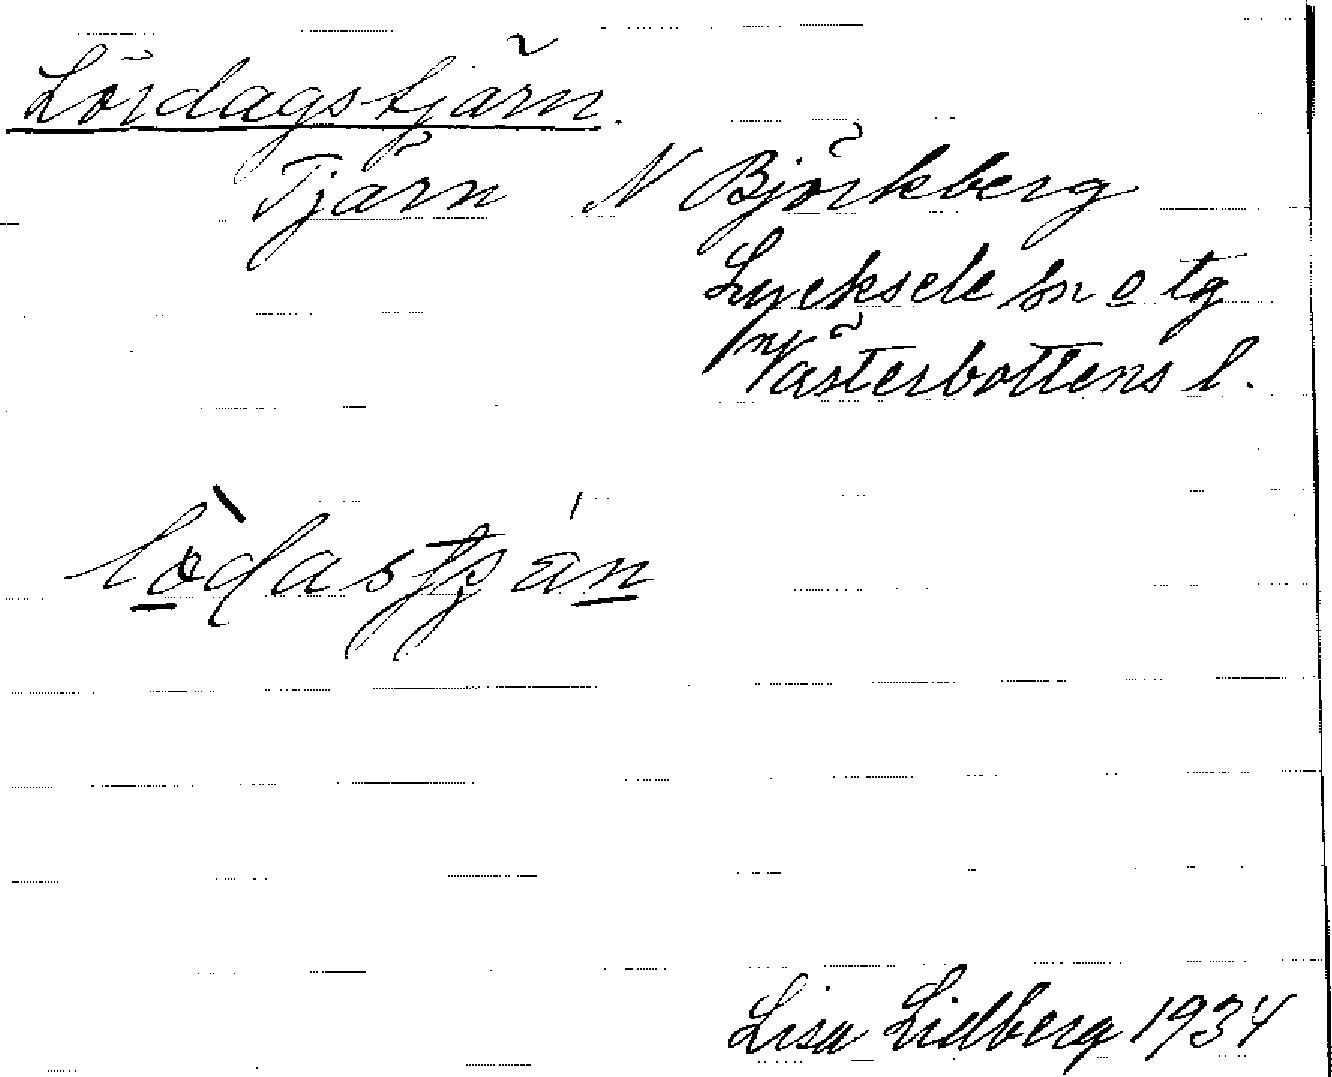 Lördagstjärn.
Tjärn N Björkberg
Lycksele sn o tg
Västerbottens l.
Lisa Lidberg 1934